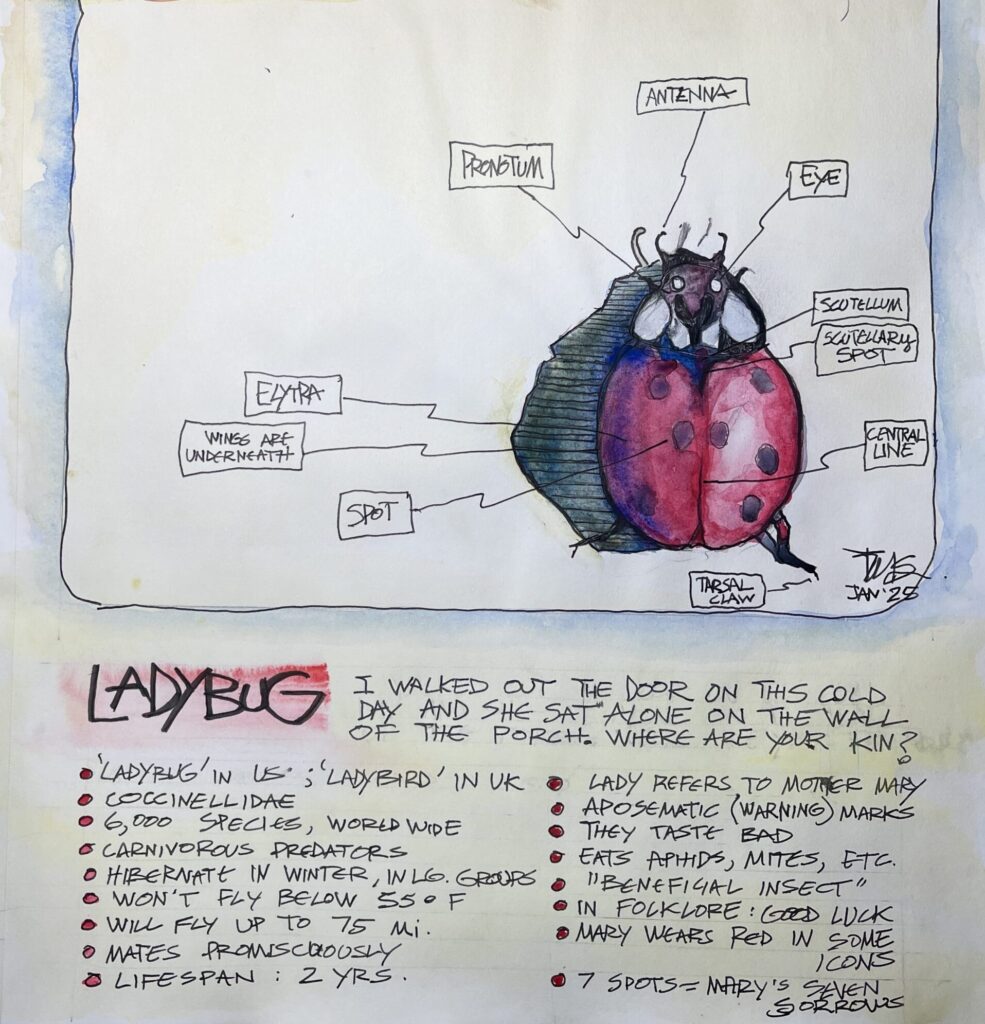 ANTENNA
PRONOTUM
EYE
SCUTELLUM
SCUTELLARY
SPOT
ELYTRA
WINGS ARE
UNDERNEATH
CENTRAL
LINE
SPOT
TARSAL
CLAW
JAN '25
LADYBUG
I WALKED OUT THE DOOR ON THIS COLD
DAY AND SHE SAT ALONE ON THE WALL
OF THE PORCH. WHERE ARE YOUR KIN?
'LADYBUG' IN US ; 'LADYBIRD' IN UK
COCCINELLIDAE
6,000 SPECIES, WORLDWIDE
CARNIVOROUS PREDATORS
HIBERNATE IN WINTER, IN LG. GROUPS
WON'T FLY BELOW 55° F
WILL FLY UP TO 75 MI.
MATES PROMISCUOUSLY
LIFESPAN : 2 YRS.
LADY REFERS TO MOTHER MARY
APOSEMATIC (WARNING) MARKS
THEY TASTE BAD
EATS APHIDS, MITES, ETC.
"BENEFICIAL INSECT"
IN FOLKLORE : GOOD LUCK
MARY WEARS RED IN SOME
ICONS
7 SPOTS = MARY'S SEVEN
SORROWS